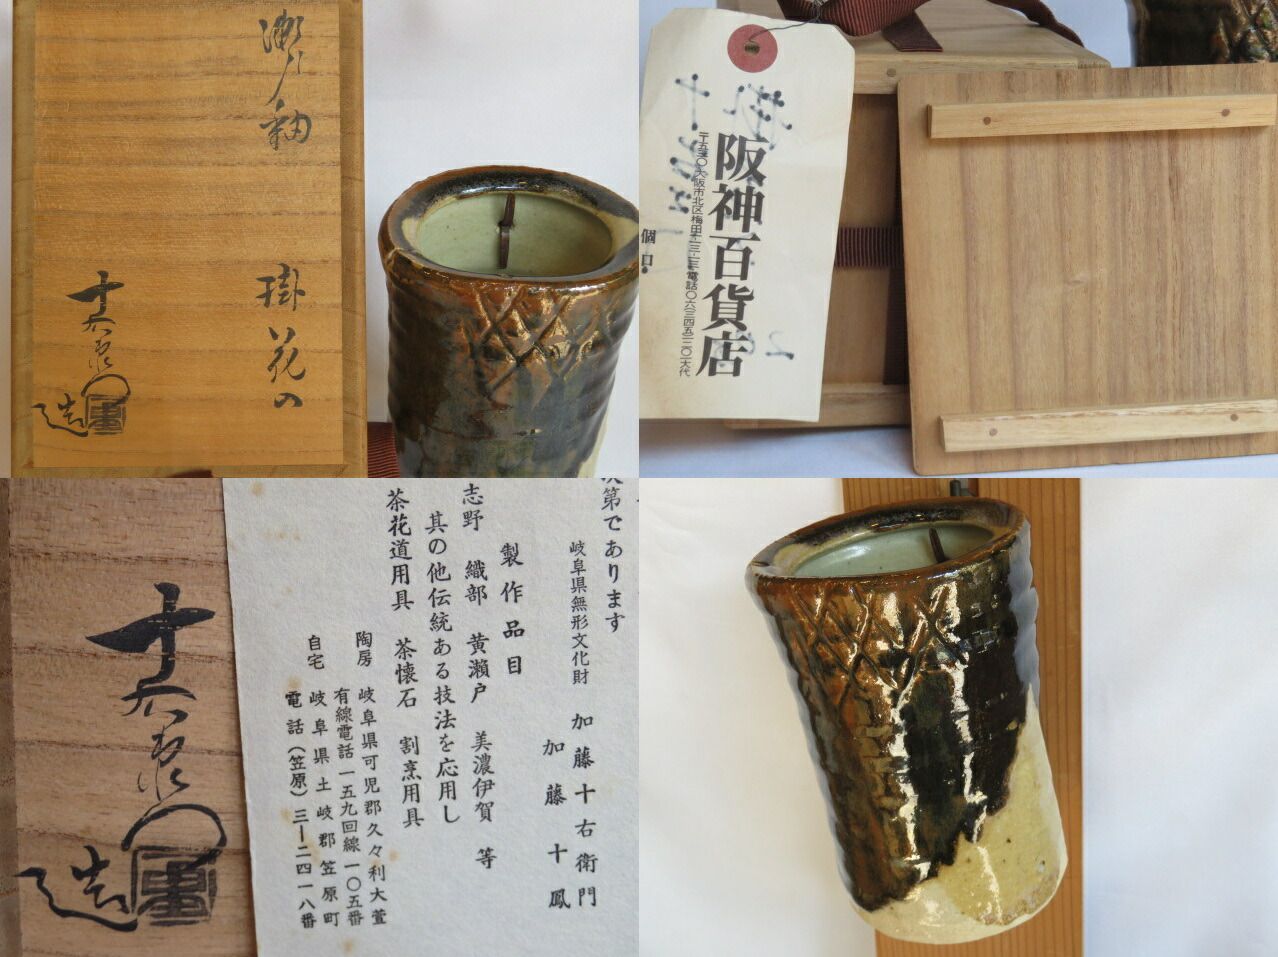 瀬戸釉
掛花の
十右衛門
造
阪神百貨店
個口
次第であります
岐阜県無形文化財　加藤十右衛門
加藤十鳳
製作品目
志野　織部　黄瀬戸　美濃伊賀　等
其の他伝統ある技法を応用し
茶花道用具　茶懐石　割烹用具
陶房　岐阜県可児郡久々利大萱
有線電話一五九回線一〇五番
自宅　岐阜県土岐郡笠原町
電話（笠原）三ー二四一八番
十右衛門
造